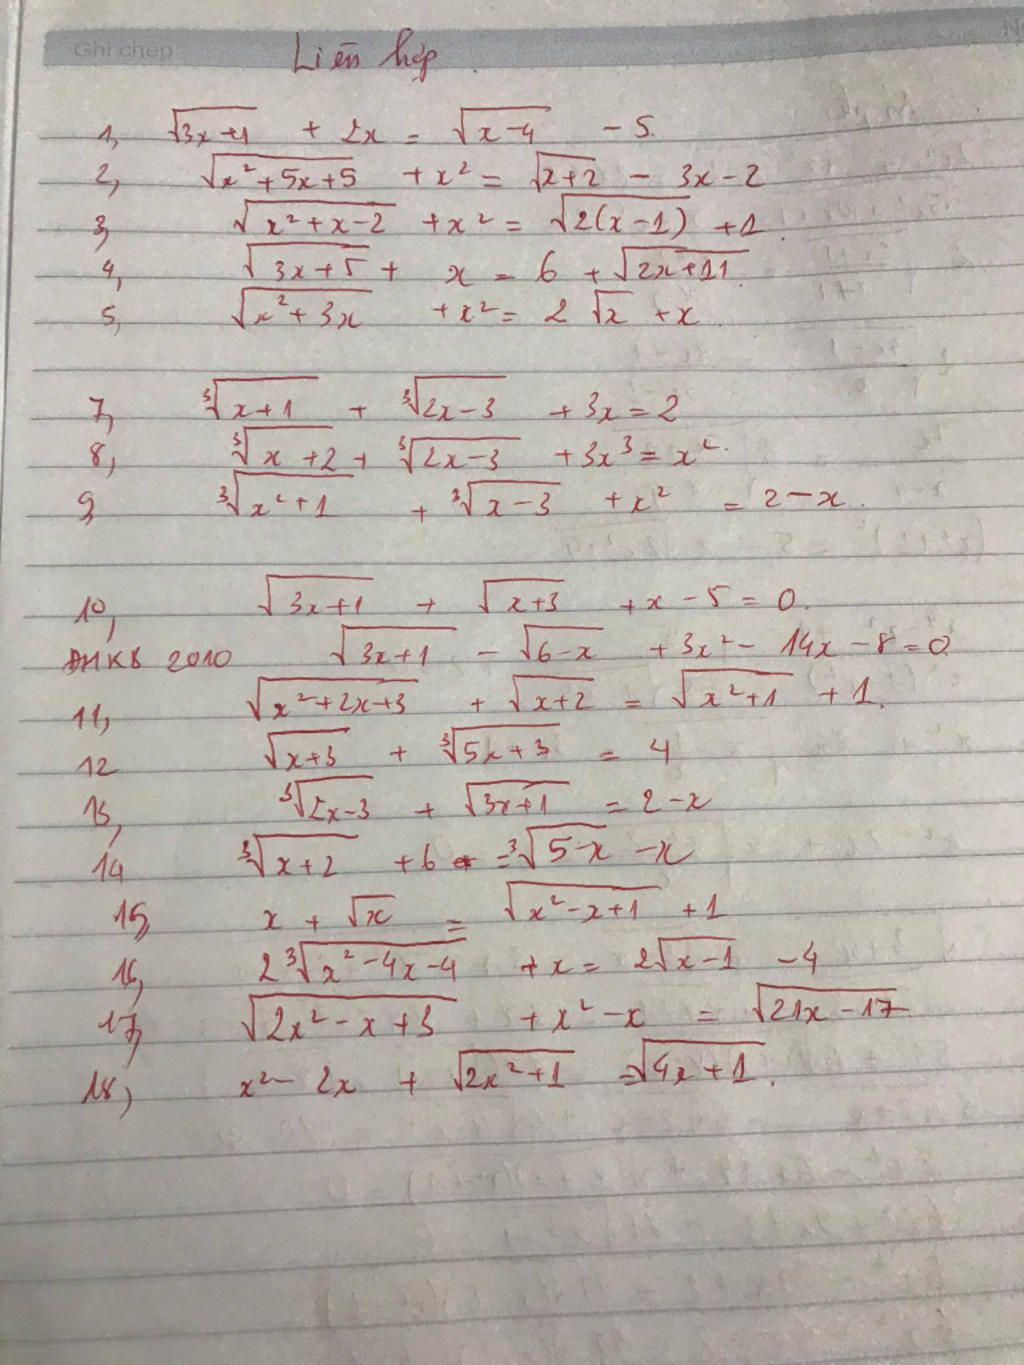 Ghi chép
Liên hợp
1, √(3x+1) + 2x = √(x-4) - 5
2, √(x²+5x+5) + x² = √(x+2) - 3x - 2
3, √(x²+x-2) + x² = √(2(x-1)) + 1
4, √(3x+5) + x = 6 + √(2x+11)
5, √(x²+3x) + x² = 2√x + x
7, ∛(x+1) + ∛(2x-3) + 3x = 2
8, ∛(x+2) + ∛(2x-3) + 3x³ = x²
9, ∛(x²+1) + ∛(x-3) + x² = 2 - x
10, √(3x+1) + √(x+3) + x - 5 = 0
ĐHKB 2010 √(3x+1) - √(6-x) + 3x² - 14x - 8 = 0
11, √(x²+2x+3) + √(x+2) = √(x²+1) + 1
12 √(x+3) + ∛(5x+3) = 4
13, ∛(2x-3) + √(3x+1) = 2 - x
14 ∛(x+2) + 6 = ∛(5-x) - x
15, x + √x = √(x²-x+1) + 1
16, 2∛(x²-4x-4) + x = 2√(x-1) - 4
17, √(2x²-x+3) + x² - x = √(21x-17)
18, x² - 2x + √(2x²+1) = √(4x+1).